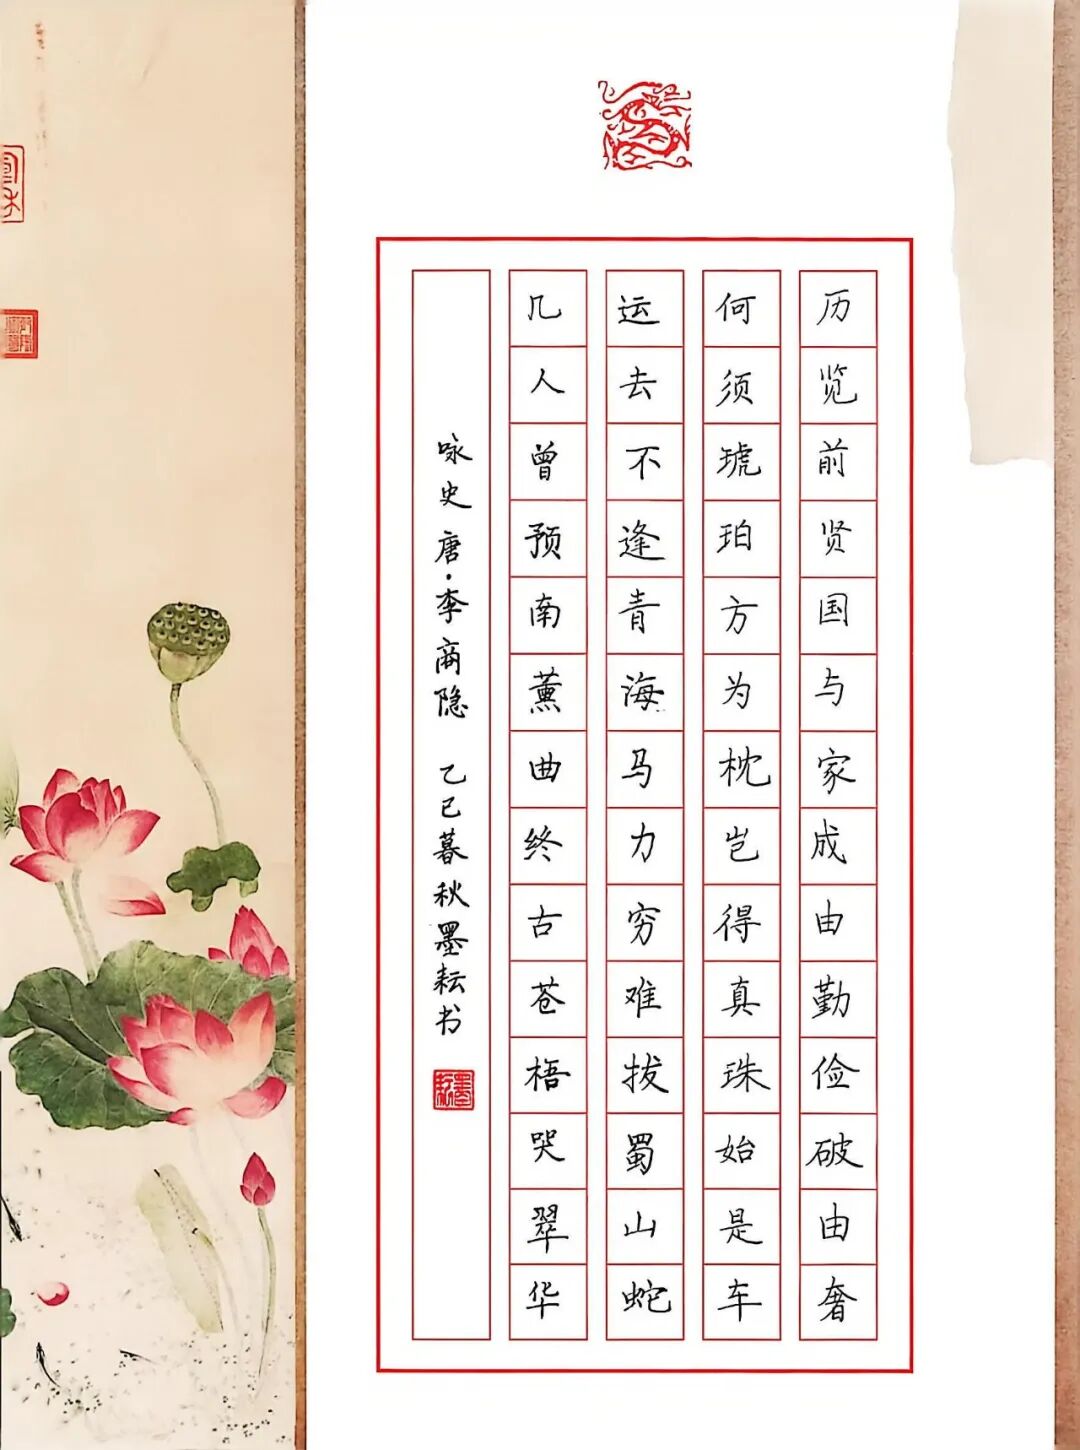 历览前贤国与家成由勤俭破由奢
何须琥珀方为枕岂得真珠始是车
运去不逢青海马力穷难拔蜀山蛇
几人曾预南薰曲终古苍梧哭翠华
咏史唐·李商隐 乙巳暮秋墨耘书
墨耘